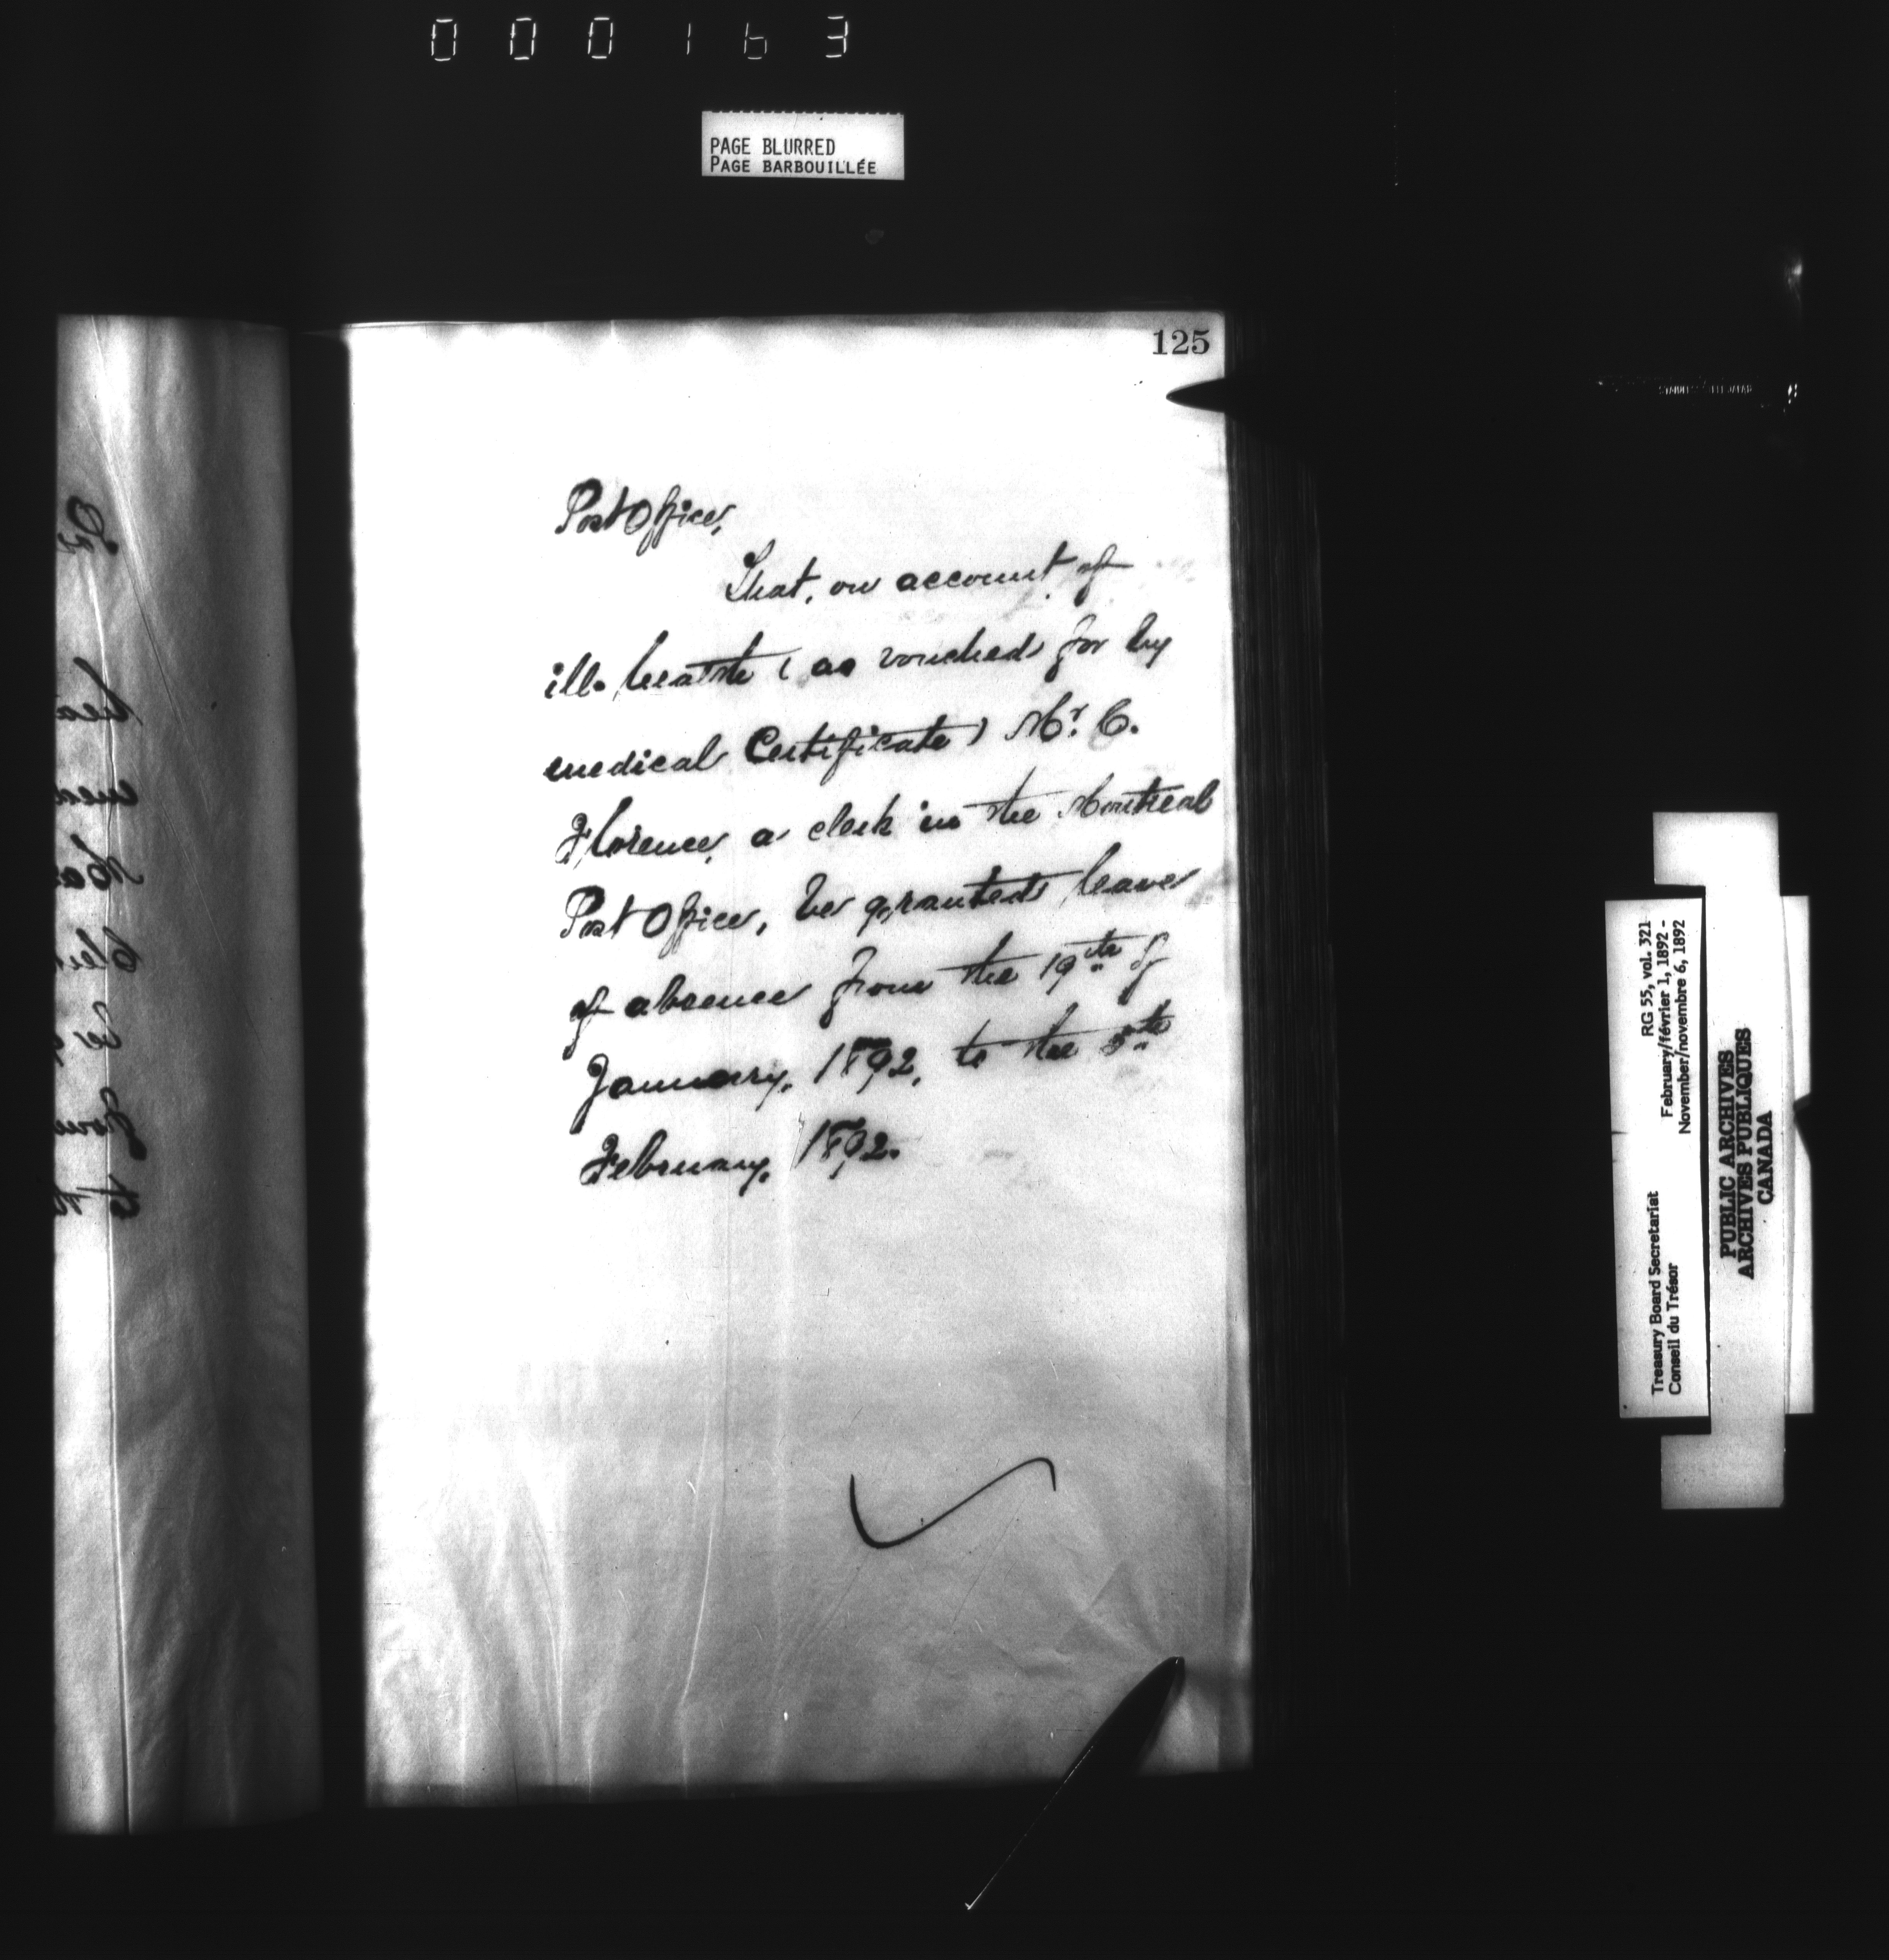 000163
PAGE BLURRED
PAGE BARBOUILLÉE
125
Post Office,
That, on account of
ill-health (as vouched for by
medical Certificate) Mr. C.
Florence, a clerk in the Montreal
Post Office, be granted leave
of absence from the 19th of
January, 1892, to the 5th
February, 1892.
RG 55, vol. 321
February/février 1, 1892 -
November/novembre 6, 1892
Treasury Board Secretariat
Conseil du Trésor
PUBLIC ARCHIVES
ARCHIVES PUBLIQUES
CANADA